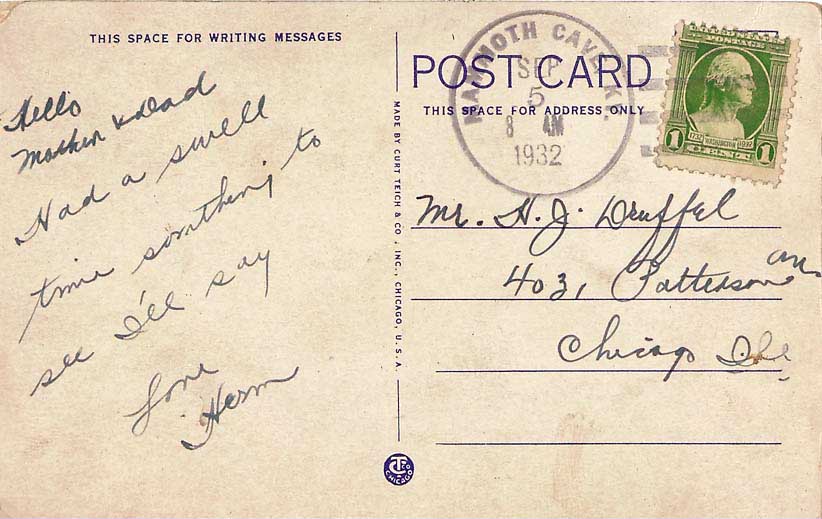 THIS SPACE FOR WRITING MESSAGES
Hello
Mother & Dad
Had a swell
time somthing to
see I'll say
Love
Herm
MADE BY CURT TEICH & CO., INC., CHICAGO, U.S.A.
CT & CO
CHICAGO
POST CARD
THIS SPACE FOR ADDRESS ONLY
MAMMOTH CAVE, KY.
SEP
5
8 AM
1932
UNITED STATES
POSTAGE
1732 WASHINGTON 1932
1 CENT 1
Mr. H. J. Druffel
4031 Patterson Ave
Chicago Ill